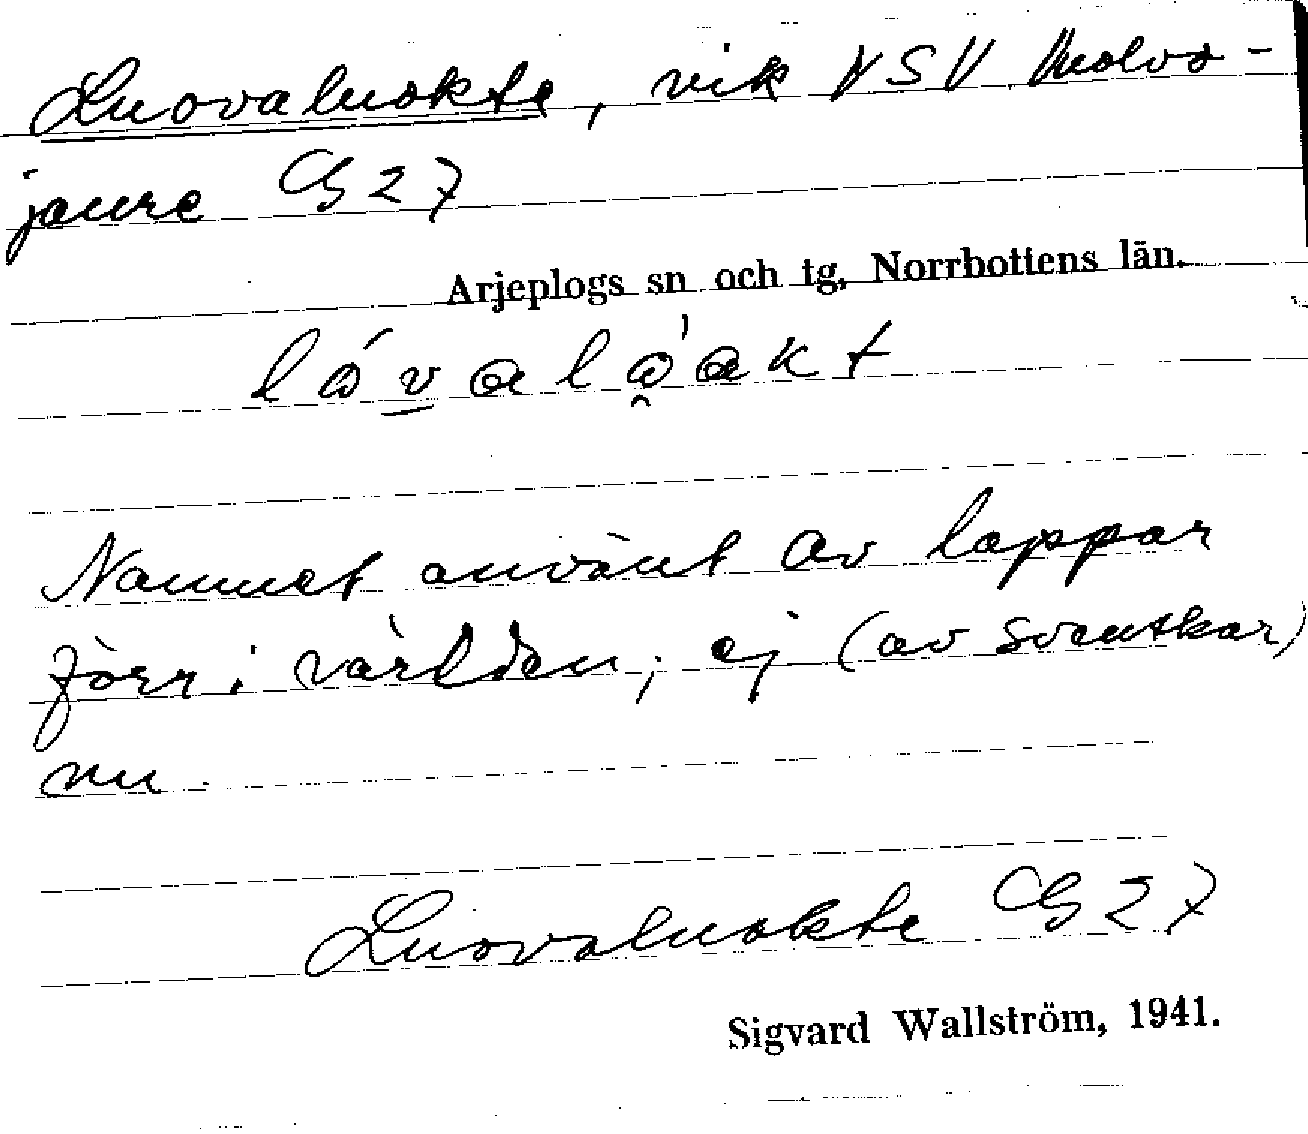 Luovaluokte, vik VSV Molvo-
jaure CG 27
Arjeplogs sn och tg, Norrbottens län.
Namnet använt av lappar
förr i världen; ej (av svenskar)
nu.
Luovaluokte CG 27
Sigvard Wallström, 1941.